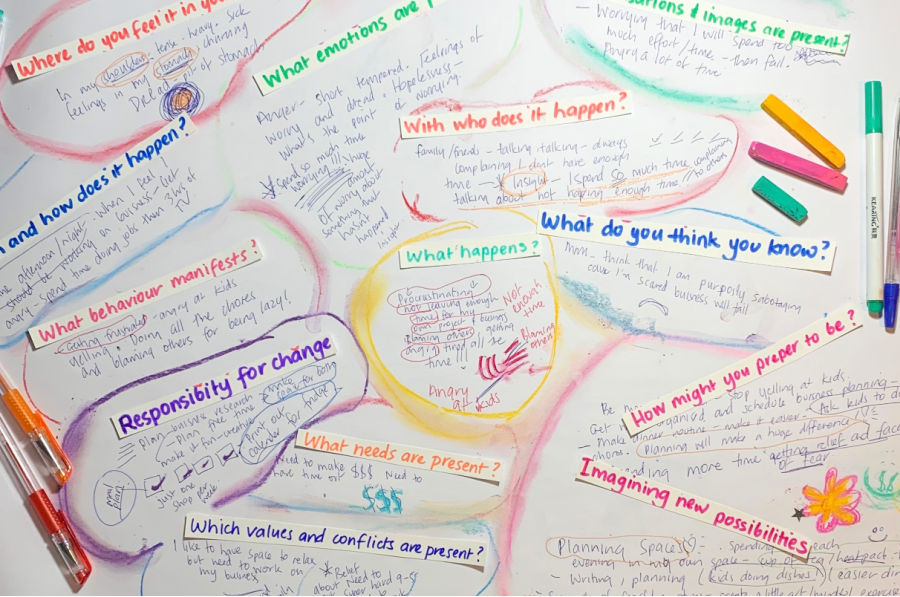 Where do you feel it in you
In my shoulders - tense - heavy. Sick
feelings in my stomach churning
DREAD - pit of stomach
What emotions are
Anger - short tempered. Feelings of
worry and dread. Hopelessness -
What's the point of worrying.
Spend so much
time worrying!!!
Huge
amount
of worry about
something that
hasn't
happened
insight
sations & images are present?
- Worrying that I will spend too
much effort/time - then fail.
Angry a lot of time
With who does it happen?
family/friends - talking talking - always
complaining I dont have enough
time - Insight - I spend so much time complaining
talking about not having enough time. to others
n and how does it happen?
afternoon/night when I feel I
should be working on business. Get
angry. Spend time doing jobs then 3 hrs of
TV
What behaviour manifests?
Getting frustrated - angry at kids
yelling. Doing all the chores
and blaming others for being lazy!
What happens?
Procrastinating
not leaving enough
time for my
own project & business
Blaming others - getting
angry, tired all the
time!!!
Not
enough
time
Blaming
others
Angry
at kids
What do you think you know?
Mmm - think that I am purposly sabotaging
cause I'm scared business will
fail
Responsibity for change
Plan - business research
- Plan free time
make it fun - creative
make
plans for both
Print out
calender for tracker
Just one
step per
week
mini
plan!
What needs are present?
Need to make $$$ Need to
have time off
$$$
Which values and conflicts are present?
I like to have space to relax
but need to work on
my business
Belief
about need to
super hard 9-5
How might you preper to be?
STOP yelling at kids.
Get organised and schedule business planning -
make dinner routine - make it easier - Ask kids to d
phone. Planning will make a huge difference!!!
ending more time getting relief and face
of fear
Imagining new possibilities
Planning Spaces - spending each
evening in my own space - cup of tea/heatpack -
- Writing, planning (kids doing dishes) (easier din
KEARING